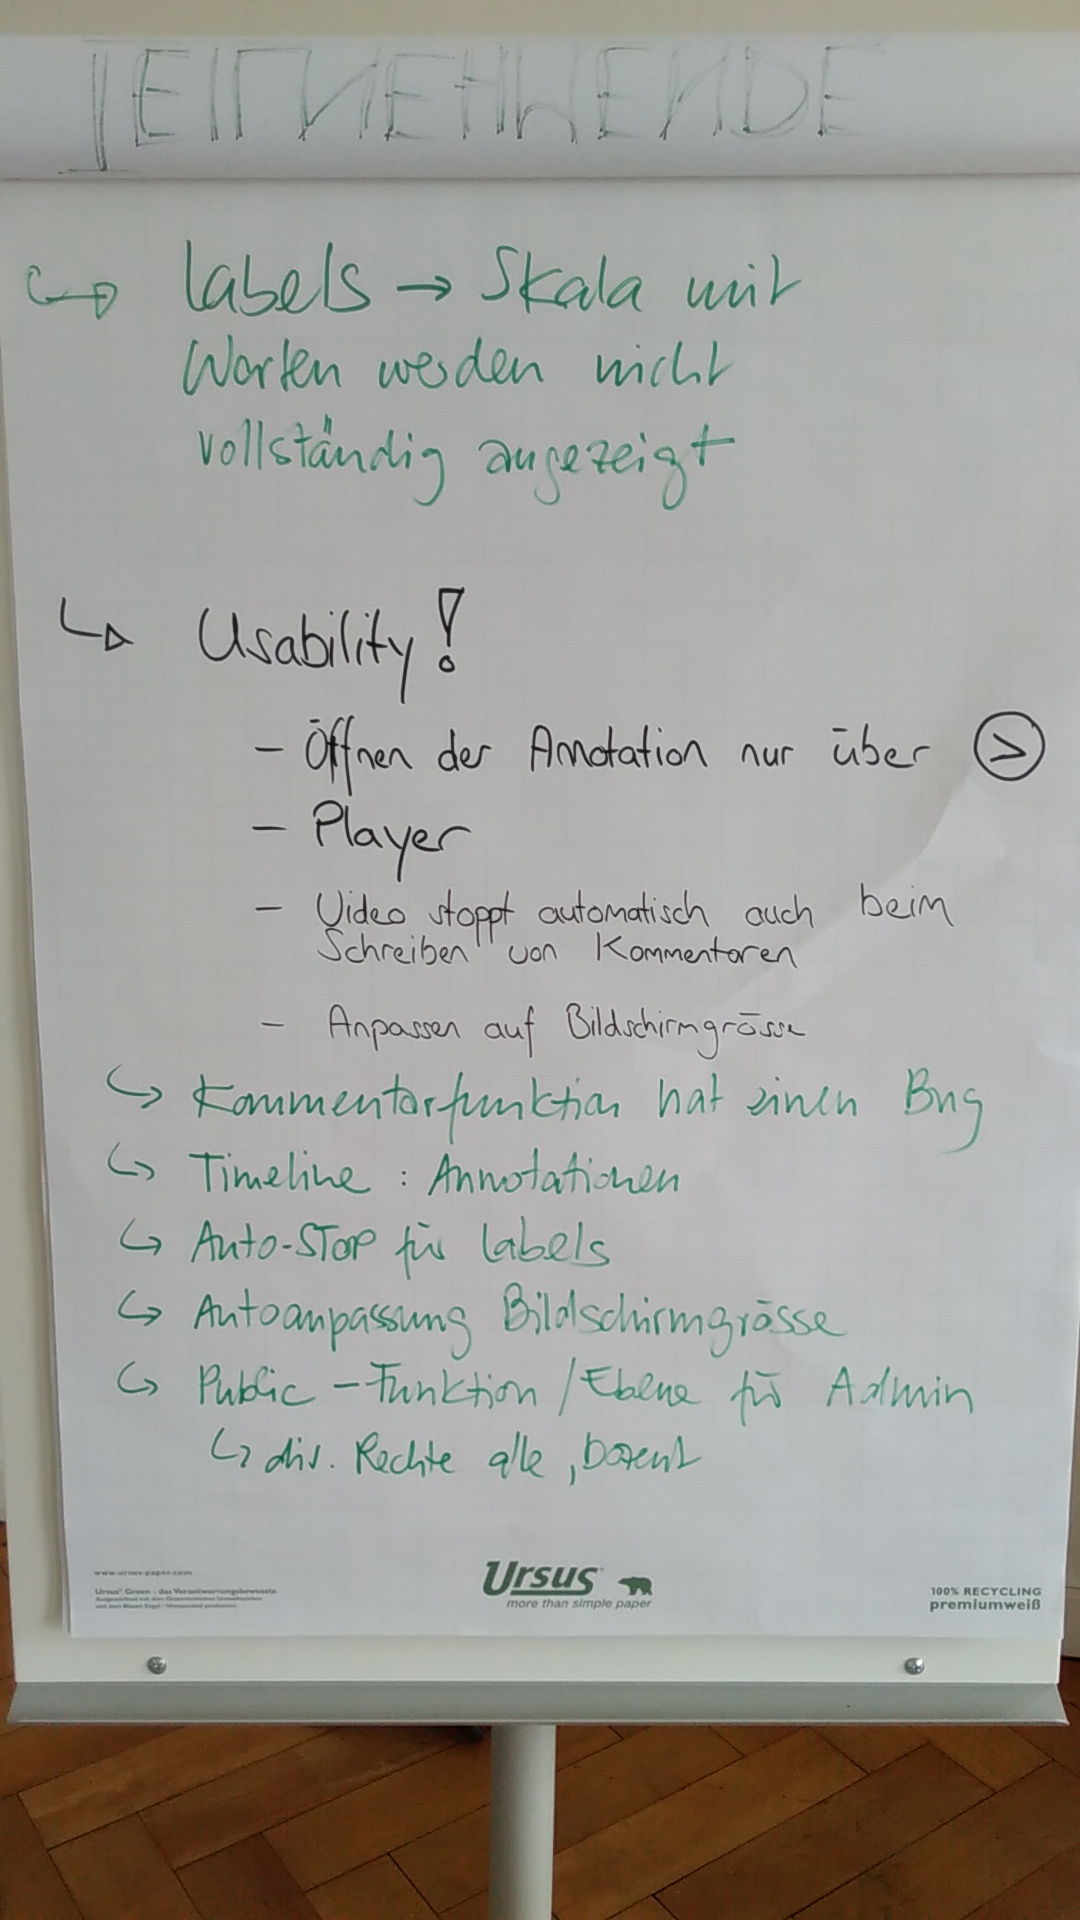 TEILNEHMENDE
↪ Labels → Skala mit
Worten werden nicht
vollständig angezeigt
↪ Usability!
- Öffnen der Annotation nur über >
- Player
- Video stoppt automatisch auch beim
Schreiben von Kommentaren
- Anpassen auf Bildschirmgrösse
↪ Kommentarfunktion hat einen Bug
↪ Timeline : Annotationen
↪ Auto-STOP für Labels
↪ Autoanpassung Bildschirmgrösse
↪ Public - Funktion / Ebene für Admin
↪ div. Rechte alle, Dozent
www.ursus-paper.com
Ursus® Green - das Verantwortungsbewusste
Ursus
more than simple paper
100% RECYCLING
premiumweiß